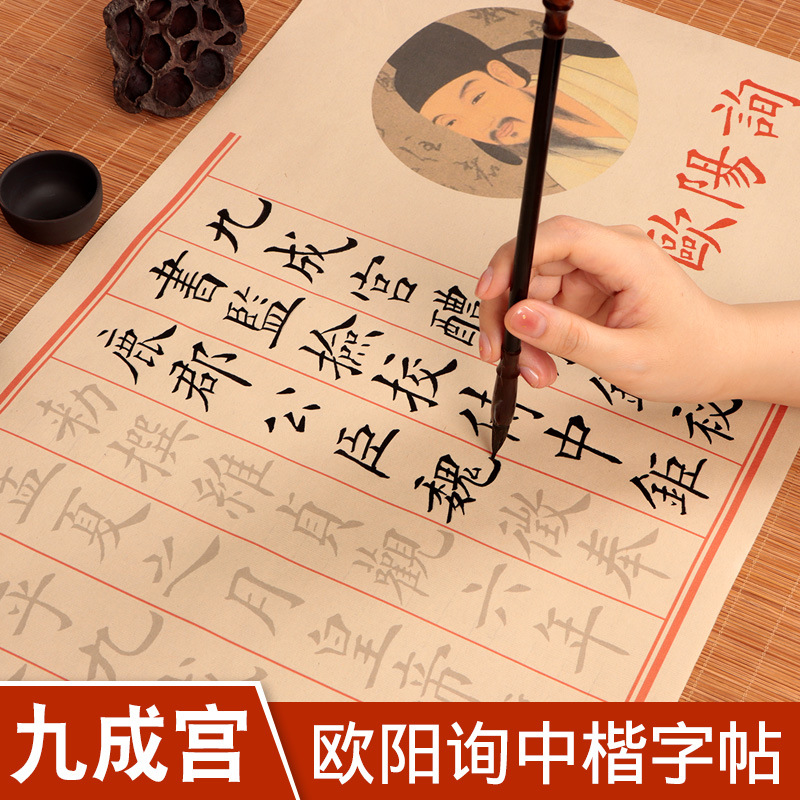 歐陽詢
九成宮醴祕
書監撿挍侍中鉅
鹿郡公臣魏徵奉
勑撰維貞觀六年
孟夏之月皇帝
乎九
九成宫
欧阳询中楷字帖